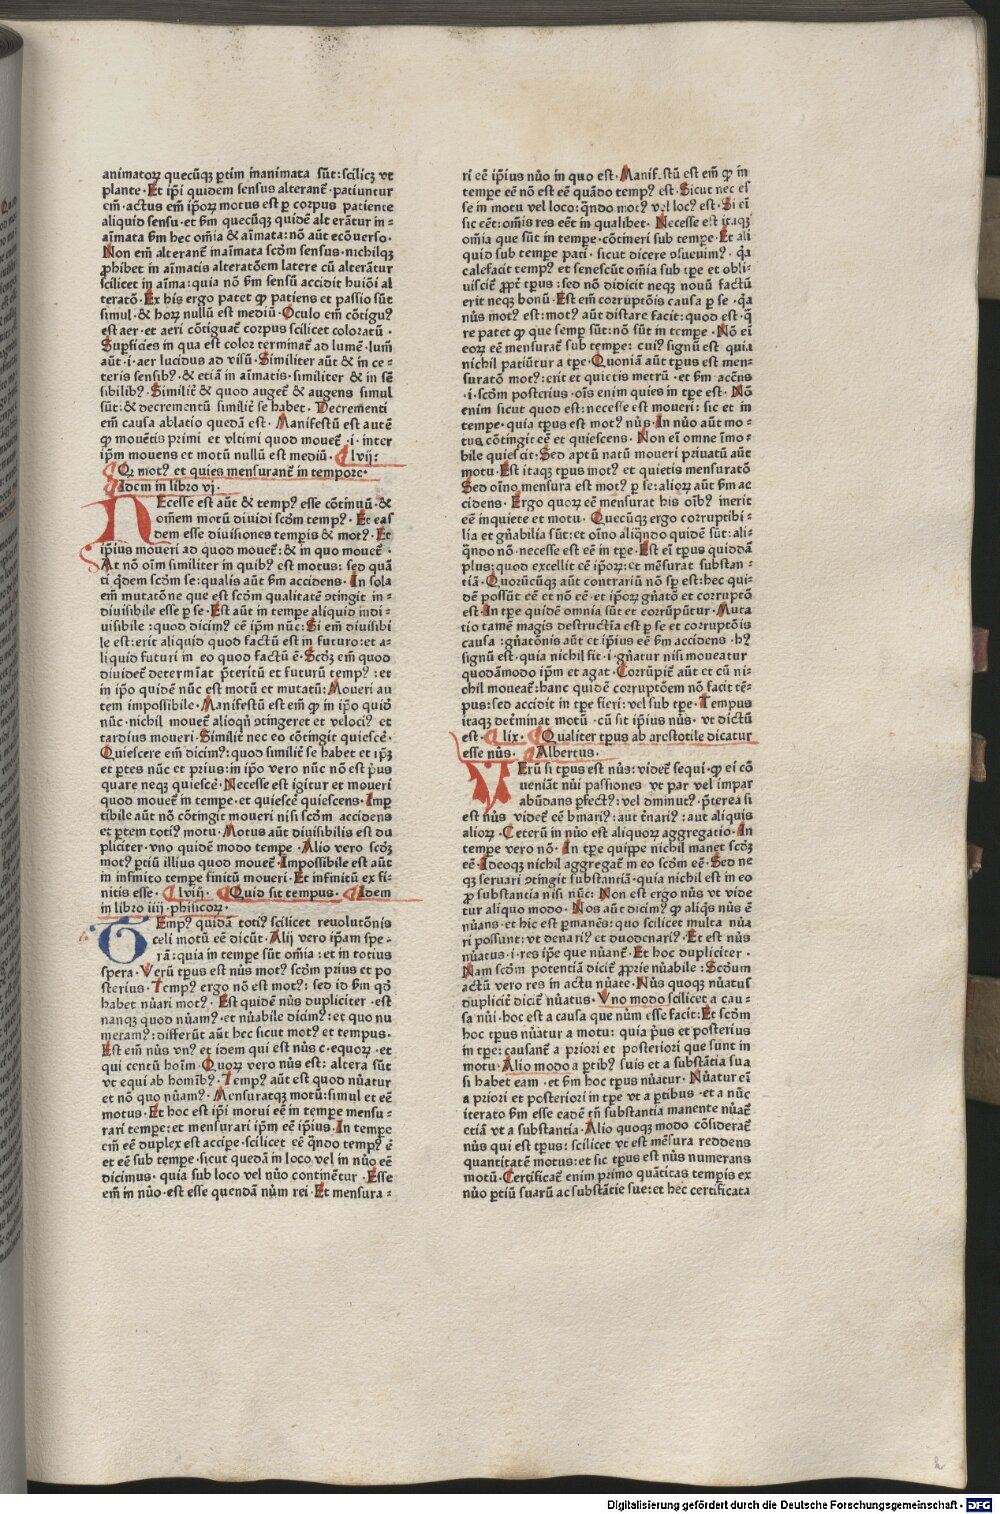 animatoꝝ quecūqꝫ ꝑtim inanimata sūt: scilicꝫ vt
plante · Et ip̄i quidem sensus alteranť · patiuntur
em̄ · actus em̄ ip̄oꝝ motus est ꝑ corpus patiente
aliquid sensu · et ẜm quecūqꝫ quidē alterātur in=
aīmata ẜm hec om̄ia & aīmata: nō aūt ecōuerso ·
Non em̄ alteranť inaīmata scḋm sensus · nichilqꝫ
ꝓhibet in aīmatis alteratōem latere cū alterātur
scilicet in aīma: quia nō ẜm sensū accidit huiōi al
teratō · Ex his ergo patet ꝙ patiens et passio sūt
simul · & hoꝝ nullū est mediū · Oculo em̄ cōtiguꝰ
est aer · et aeri cōtiguať corpus scilicet coloratū ·
Supficies in qua est color terminať ad lumē · lum̄
aūt · i · aer lucidus ad visū · Similiter aūt & in ce=
teris sensibꝰ · & etiā in aīmatis · similiter & in sē
sibilibꝰ · Similiť & quod augeť & augens simul
sūt: & decrementū similiť se habet · Decrementi
em̄ causa ablatio quedā est · Manifestū est autē
ꝙ mouētis primi et vltimi quod moueť · i · inter
ip̄m mouens et motū nullū est mediū · lvij:
Qꝛ motꝰ et quies mensuranť in tempore ·
Idem in libro vj ·
NEcesse est aūt & tempꝰ esse cōtinuū · &
om̄em motū diuidi scḋm tempꝰ · Et eas
dem esse diuisiones temꝑis & motꝰ · Et
ip̄ius moueri ad quod moueť: & in quo moueť ·
At nō oīm similiter in quibꝰ est motus: sed quā
ti q̇dem scḋm se: qualis aūt ẜm accidens · In sola
em̄ mutatōne que est scḋm qualitatē ꝯtingit in=
diuisibile esse ꝑ se · Est aūt in tempe aliquid indi=
uisibile: quod dicimꝰ eē ip̄m nūc: Si em̄ diuisibi
le est: erit aliquid quod factū est in futuro: et a=
liquid futuri in eo quod factū ē · Scḋꝫ em̄ quod
diuideť determīat p̄teritū et futurū tempꝰ: et
in ip̄o quidē nūc est motū et mutatū: Moueri au
tem impossibile · Manifestū est em̄ ꝙ in ip̄o quid̄
nūc · nichil moueť alioqn̄ ꝯtingeret et velociꝰ et
tardius moueri · Similiť nec eo cōtingit quiescē ·
Quiescere em̄ dicimꝰ: quod similiť se habet et ip̄ꝫ
et ꝑtes nūc et prius: in ip̄o vero nūc nō est p̄us
quare neqꝫ quiescē · Necesse est igitur et moueri
quod moueť in tempe · et quiescē quiescens · Imꝑ
tibile aūt nō cōtingit moueri nisi scḋm accidens
et ꝑtem totiꝰ motu · Motus aūt diuisibilis est du
pliciter · vno quidē modo tempe · Alio vero scḋꝫ
motꝰ ꝑtiū illius quod moueť · Impossibile est aūt
in infinito tempe finitū moueri · Et infinitū ex fi=
nitis esse · lviij · Quid sit tempus · Idem
in libro iiij · phīlicoꝝ ·
TEmpꝰ quidā totiꝰ scilicet reuolutōnis
celi motū eē dicūt · Alij vero ip̄am spe=
rā: quia in tempe sūt om̄ia: et in totius
spera · Verū tꝑus est nūs motꝰ scḋm prius et po
sterius · Tempꝰ ergo nō est motꝰ: sed id ẜm qḋ
habet nūari motꝰ · Est quidē nūs dupliciter · est
nanqꝫ quod nūamꝰ · et nūabile dicimꝰ: et quo nu
meramꝰ: differūt aūt hec sicut motꝰ et tempus ·
Est em̄ nūs vnꝰ et idem qui est nūs c · equoꝝ · et
qui centū hoīm · Quoꝝ vero nūs est: altera sūt
vt equi ab homībꝰ · Tempꝰ aūt est quod nūatur
et nō quo nūamꝰ · Mensuratqꝫ motū: simul et eē
motus · Et hoc est ip̄i motui eē in tempe mensu=
rari tempe: et mensurari ip̄m eē ip̄ius · In tempe
em̄ eē duplex est accipe · scilicet eē qn̄do tempꝰ ē
et eē sub tempe · sicut quedā in loco vel in nūo eē
dicimus · quia sub loco vel nūo continētur · Esse
em̄ in nūo · est esse quendā nūm rei · Et mensura=
ri eē ip̄ius nūo in quo est · Manifestū est em̄ ꝙ in
tempe eē nō est eē quādo tempꝰ est · Sicut nec es
se in motu vel loco: qn̄do motꝰ vel locꝰ est · Si eī
sic eēt: om̄is res eēt in qualibet · Necesse est itaqꝫ
om̄ia que sūt in tempe · cōtineri sub tempe · Et ali
quid sub tempe pati · sicut dicere ꝯsueuimꝰ · q̄a
calefacit tempꝰ et senescūt om̄ia sub tꝑe et obli=
uisciť ꝓpť tꝑus: sed nō didicit neqꝫ nouū factū
erit neqꝫ bonū · Est em̄ corruptōis causa ꝑ se · q̄a
nūs motꝰ est: motꝰ aūt distare facit: quod est · q̄
re patet ꝙ que semꝑ sūt: nō sūt in tempe · Nō eī
eoꝝ eē mensurať sub tempe: cuiꝰ signū est quia
nichil patiūtur a tꝑe · Quoniā aūt tꝑus est men=
suratō motꝰ: erit et quietis metrū · et ẜm accn̄s
· i · scḋm posterius · oīs enim quies in tꝑe est · Nō
enim sicut quod est: necesse est moueri: sic et in
tempe · quia tꝑus est motꝰ nūs · In nūo aūt mo=
tus cōtingit eē et quiescens · Non eī omne īmo=
bile quiescit: Sed aptū natū moueri priuatū aūt
motu · Est itaqꝫ tꝑus motꝰ et quietis mensuratō
Sed oīno mensura est motꝰ ꝑ se: alioꝝ aūt ẜm ac
cidens · Ergo quoꝝ eē mensurat his oībꝰ inerit
eē inquiete et motu · Quecūqꝫ ergo corruptibi=
lia et gn̄abilia sūt: et oīno aliqn̄do quidē sūt: ali=
qn̄do nō · necesse est eē in tꝑe · Est eī tꝑus quiddā
plus: quod excellit eē ip̄oꝝ: et mēsurat substan=
tiā · Quorūcūqꝫ aūt contrariū nō sꝑ est: hec qui=
dē possūt eē et nō eē · et ip̄oꝝ gn̄atō et corruptō
est · In tꝑe quidē omnia sūt et corrūpūtur · Muta
tio tamē magis destructīa est ꝑ se et corruptōis
causa: gn̄atōnis aūt et ip̄ius eē ẜm accidens · hꝰ
signū est · quia nichil fit · i · gn̄atur nisi moueatur
quodāmodo ip̄m et agat · Corrūpiť aūt et cū ni=
chil moueať: hanc quidē corruptōem nō facit tē=
pus: sed accidit in tꝑe fieri: vel sub tꝑe · Tempus
itaqꝫ deťminat motū · cū sit ip̄ius nūs · vt dictū
est · lix · Qualiter tꝑus ab arestotile dicatur
esse nūs · Albertus ·
VErū si tꝑus est nūs: videť sequi · ꝙ ei cō
ueniāt nūi passiones vt par vel impar
abūdans ꝑfectꝰ: vel dminutꝰ · p̄terea si
est nūs videť eē binariꝰ: aut ťnariꝰ: aut aliquis
alioꝝ · Ceterū in nūo est aliquoꝝ aggregatio · In
tempe vero nō · In tꝑe quippe nichil manet scḋꝫ
eē · Ideoqꝫ nichil aggregať in eo scḋm eē · Sed ne
qꝫ seruari ꝯtingit substantiā · quia nichil est in eo
ꝓ substantia nisi nūc: Non est ergo nūs vt vide
tur aliquo modo · Nos aūt dicimꝰ ꝙ aliq̇s nūs ē
nūans · et hic est ꝑmanēs: quo scilicet multa nūa
ri possunt: vt denariꝰ et duodenariꝰ · Et est nūs
nūatus · i · res ip̄e que nūanť · Et hoc dupliciter ·
Nam scḋm potentiā diciť ꝓprie nūabile: Scḋum
actū vero res in actu nūate · Nūs quoqꝫ nūatus
dupliciť diciť nūatus · Vno modo scilicet a cau=
sa nūi · hoc est a causa que nūm esse facit: Et scḋm
hoc tꝑus nūatur a motu: quia p̄us et posterius
in tꝑe: causanť a priori et posteriori que sunt in
motu · Alio modo a ꝑtibꝰ suis et a substātia sua
si habet eam · et ẜm hoc tꝑus nūatur · Nūatur eī
a priori et posteriori in tꝑe vt a ꝑtibus · et a nūc
iterato ẜm esse cadē tn̄ substantia manente nūať
etiā vt a substantia · Alio quoqꝫ modo cōsiderať
nūs qui est tꝑus: scilicet vt est mēsura reddens
quantitatē motus: et sic tꝑus est nūs numerans
motū · Certificať enim primo quātitas tempis ex
nūo ꝑtiū suarū ac substātie sue: et hec certificata
Digitalisierung gefördert durch die Deutsche Forschungsgemeinschaft · DFG